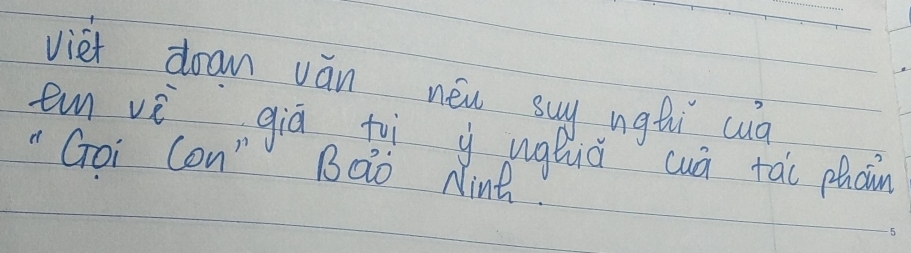 viết đoạn văn nêu suy nghĩ của
em về giá trị ý nghĩa của tác phẩm
"Gọi Con" Bảo Ninh.
5